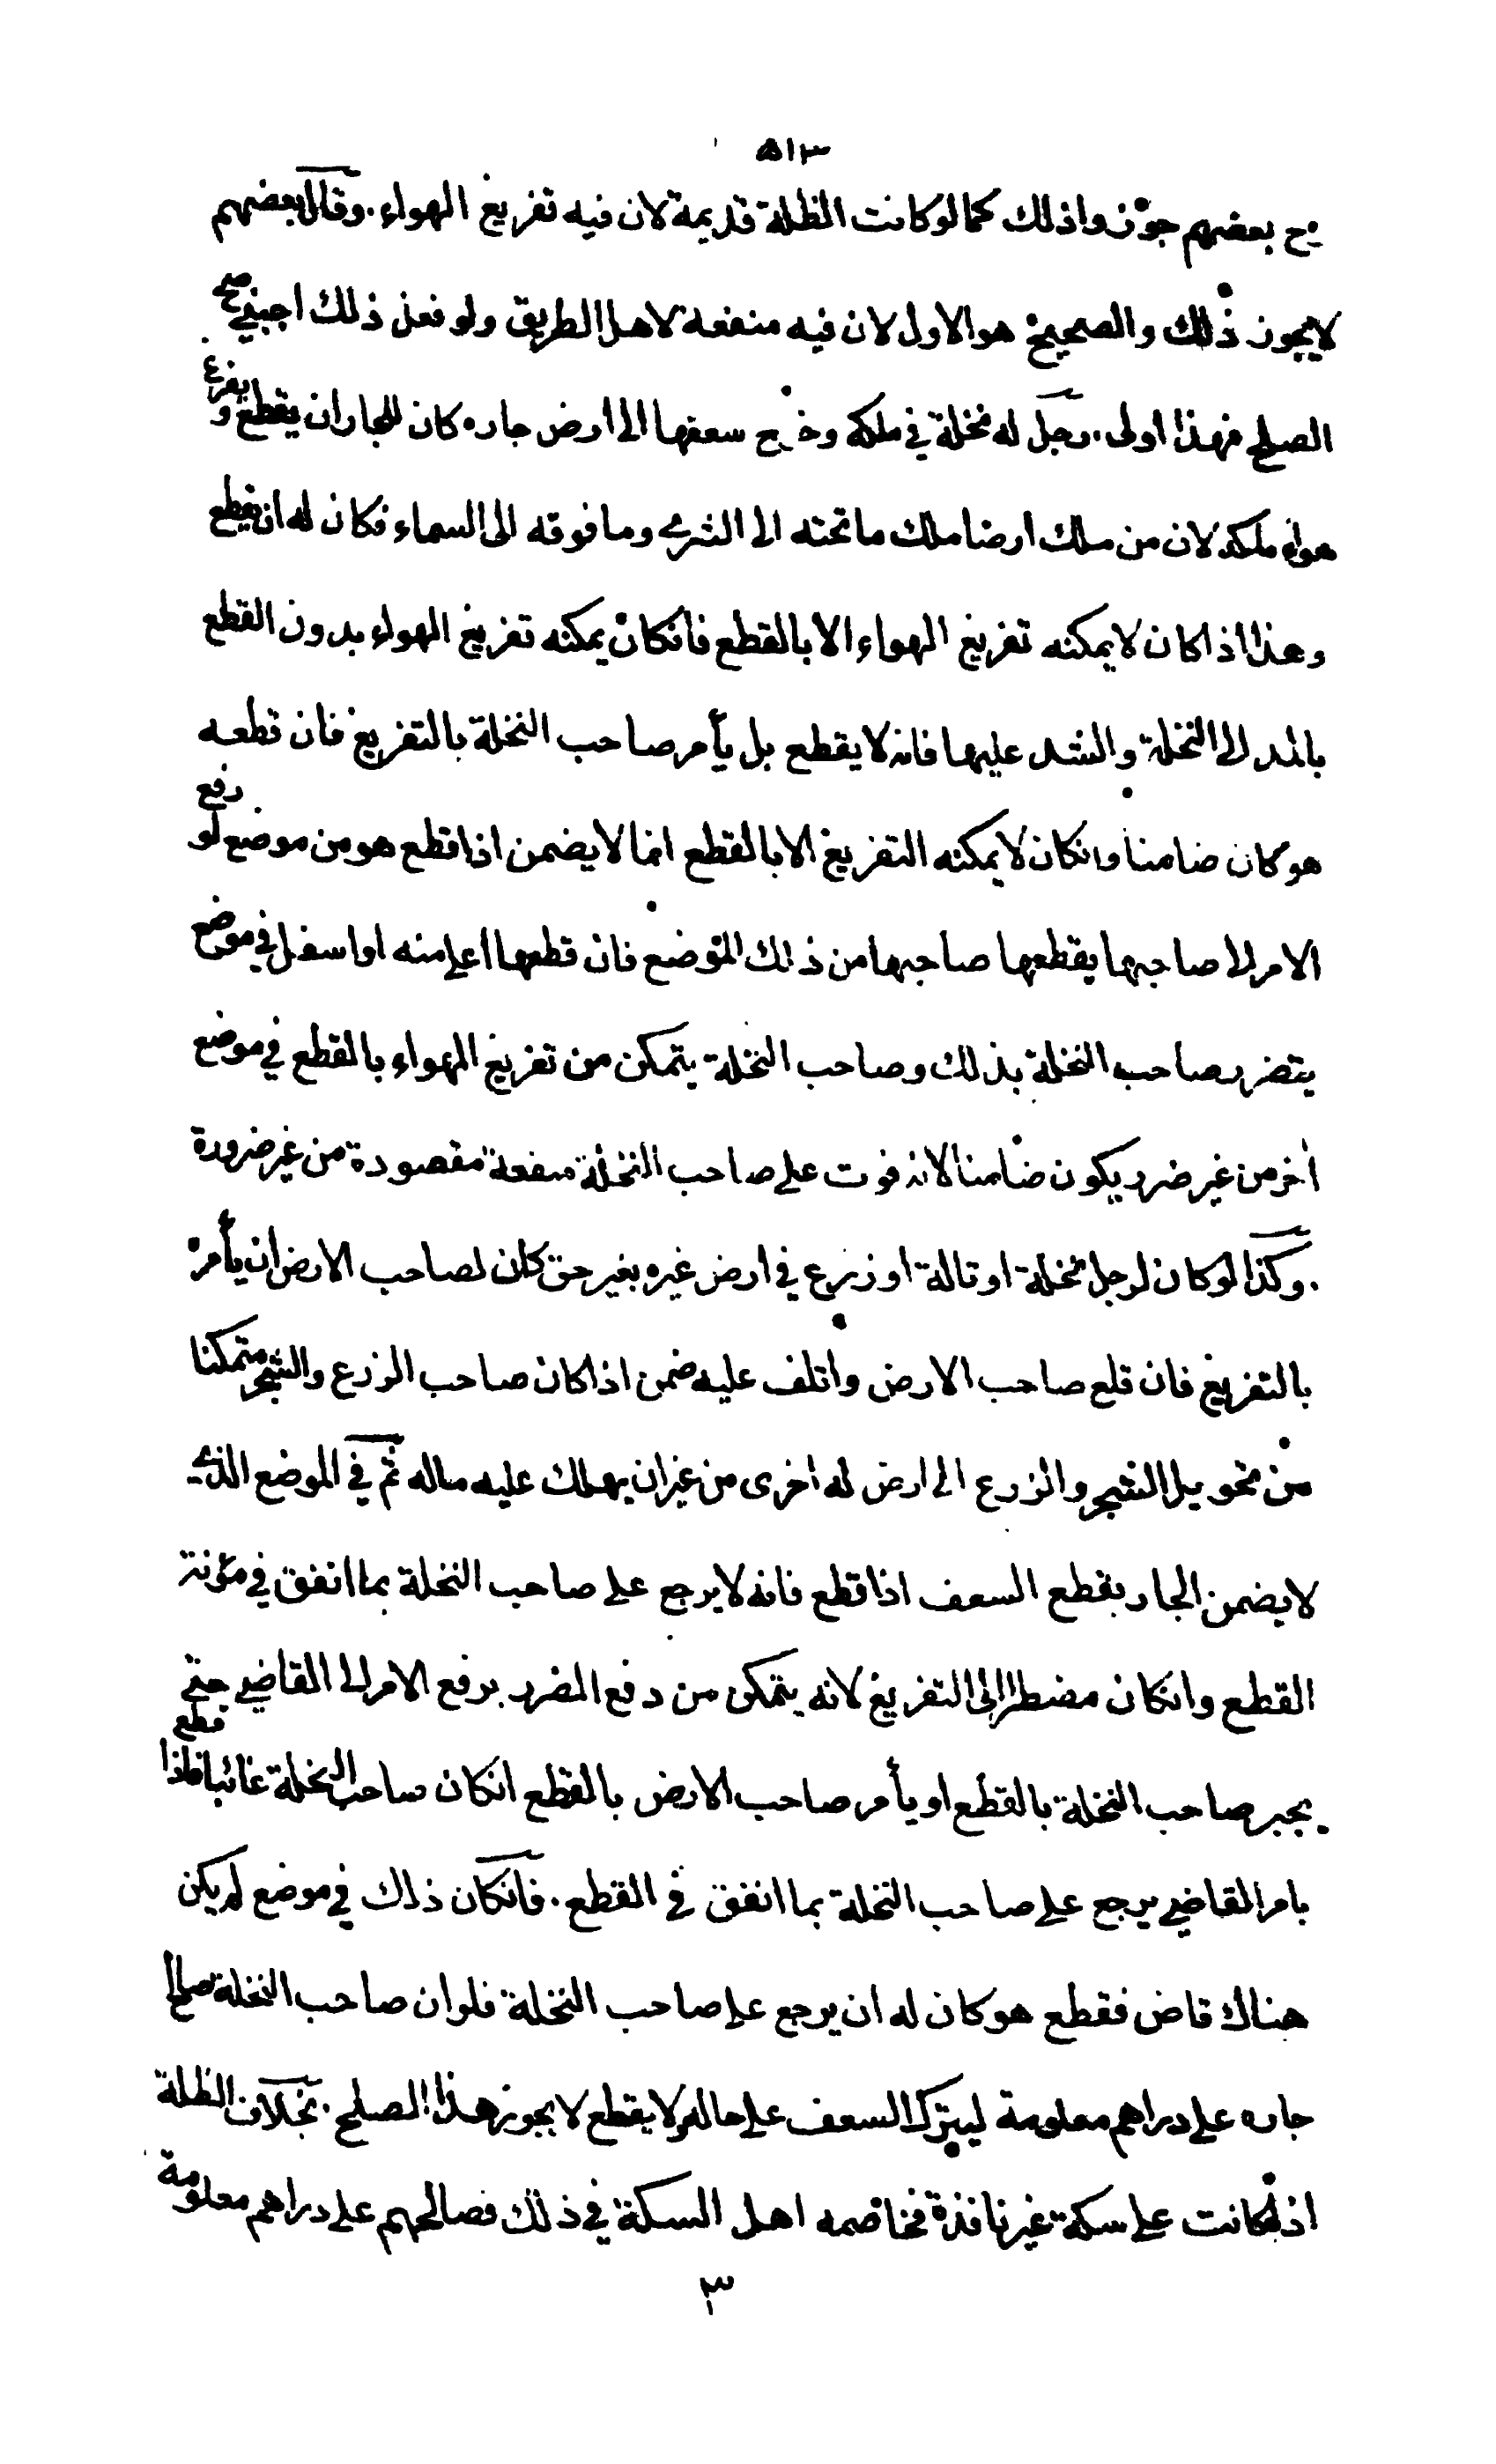 ٥١٣
يح بعضهم جوزوا ذلك كما لو كانت الظلة قديمة لان فيه تفريغ الهواء. وقال بعضهم
لا يجوز ذلك والصحيح هو الاول لان فيه منفعة لاهل الطريق ولو فعل ذلك اجنبي صح
الصلح فهذا اولى. رجل له نخلة في ملكه وخرج سعفها الى ارض جاره كان للجار ان يقطع ويفرغ
هواء ملكه لان من ملك ارضا ملك ما تحته الى الثرى وما فوقه الى السماء فكان له ان يقطع
وهذا اذا كان لا يمكنه تفريغ الهواء الا بالقطع فانكان يمكنه تفريغ الهواء بدون القطع
بالمد الى النخلة والشد عليها فانه لا يقطع بل يأمر صاحب النخلة بالتفريغ فان قطعه
هو كان ضامنا وانكان لا يمكنه التفريغ الا بالقطع انما لا يضمن اذا قطع هو من موضع لو رفع
الامر الى صاحبها يقطعها صاحبها من ذلك الموضع فان قطعها اعلى منه او اسفل في موضع
يتضرر صاحب النخلة بذلك وصاحب النخلة يتمكن من تفريغ الهواء بالقطع في موضع
اخر من غير ضرر يكون ضامنا لانه فوت على صاحب النخلة منفعة مقصودة من غير ضرورة
. وكذا لو كان لرجل نخلة او تالة او زرع في ارض غيره بغير حق كان لصاحب الارض ان يأمره
بالتفريغ فان قلع صاحب الارض واتلف عليه ضمن اذا كان صاحب الزرع والشجر متمكنا
من تحويل الشجر والزرع الى ارض له اخرى من غير ان يهلك عليه ماله ثم في الموضع الذي
لا يضمن الجار بقطع السعف اذا قطع فانه لا يرجع على صاحب النخلة بما انفق في مؤنة
القطع وانكان مضطرا الى التفريغ لانه يتمكن من دفع الضرر برفع الامر الى القاضي حتى
يجبر صاحب النخلة بالقطع او يأمر صاحب الارض بالقطع انكان صاحب النخلة غائبا فاذا قطع
بامر القاضي يرجع على صاحب النخلة بما انفق في القطع. فانكان ذلك في موضع لم يكن
هناك قاض فقطع هو كان له ان يرجع على صاحب النخلة فلو ان صاحب النخلة صالح
جاره على دراهم معلومة ليترك السعف على حاله ولا يقطع لا يجوز هذا الصلح. بخلاف الظلة
اذا كانت على سكة غير نافذة فخاصمه اهل السكة في ذلك فصالحهم على دراهم معلومة
٣